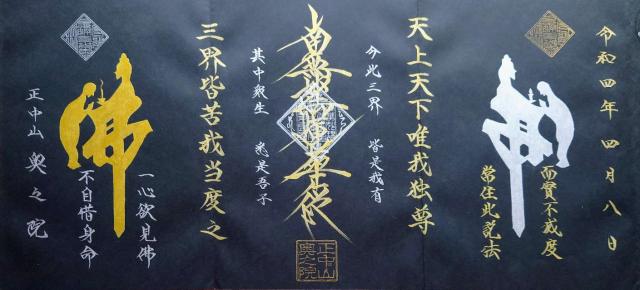 令和四年四月八日
而實不滅度
常住此説法
天上天下唯我独尊
今此三界 皆是我有
南無妙法蓮華経
其中衆生 悉是吾子
正中山
奥之院
三界皆苦我当度之
佛
一心欲見佛
不自惜身命
正中山 奥之院